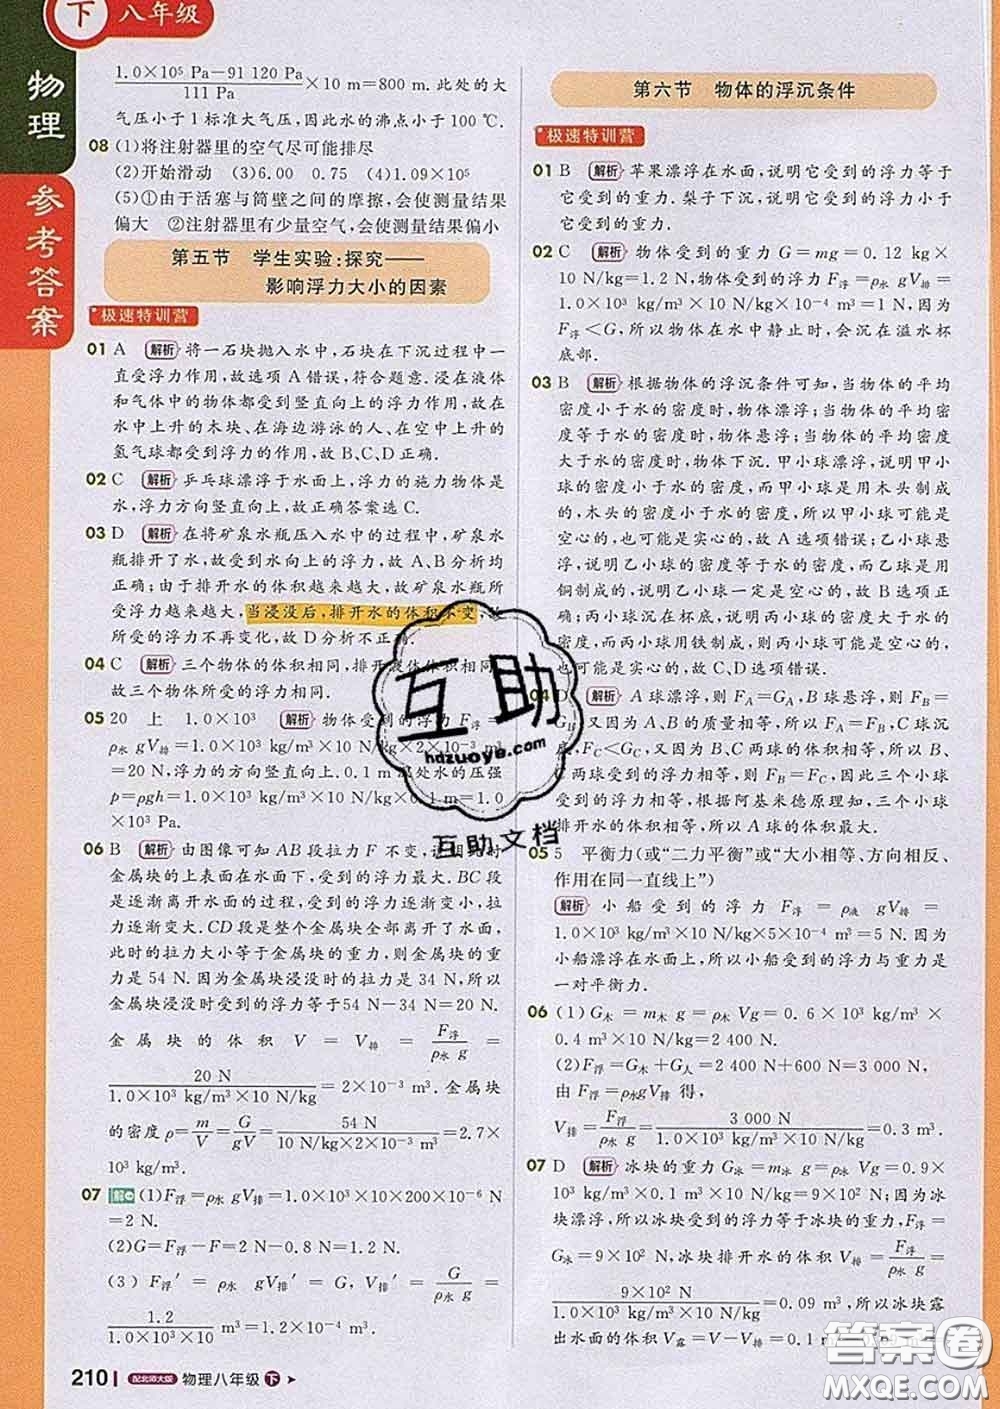 下 八年级
物理
参考答案
\frac{1.0×10⁵ Pa－91 120 Pa}{111 Pa}×10 m＝800 m. 此处的大
气压小于1标准大气压，因此水的沸点小于100 ℃.
08 (1)将注射器里的空气尽可能排尽
(2)开始滑动 (3)6.00 0.75 (4)1.09×10⁵
(5)①由于活塞与筒壁之间的摩擦，会使测量结果
偏大 ②注射器里有少量空气，会使测量结果偏小
第五节 学生实验：探究——
影响浮力大小的因素
极速特训营
01 A 解析 将一石块抛入水中，石块在下沉过程中一
直受浮力作用，故选项A错误，符合题意. 浸在液体
和气体中的物体都受到竖直向上的浮力作用，故在
水中上升的木块、在海边游泳的人、在空中上升的
氢气球都受到浮力的作用，故B、C、D正确.
02 C 解析 乒乓球漂浮于水面上，浮力的施力物体是
水，浮力方向竖直向上，故正确答案选C.
03 D 解析 在将矿泉水瓶压入水中的过程中，矿泉水
瓶排开了水，故受到水向上的浮力，故A、B分析均
正确；由于排开水的体积越来越大，故矿泉水瓶所
受浮力越来越大，当浸没后，排开水的体积不变，
所受的浮力不再变化，故D分析不正确.
04 C 解析 三个物体的体积相同，排开液体体积相同，
故三个物体所受的浮力相同.
05 20 上 1.0×10³ 解析 物体受到的浮力F浮＝
ρ水 gV排＝1.0×10³ kg/m³×10 N/kg×2×10⁻³ m³
＝20 N，浮力的方向竖直向上. 0.1 m深处水的压强
p＝ρgh＝1.0×10³ kg/m³×10 N/kg×0.1 m＝1.0
×10³ Pa.
06 B 解析 由图像可知AB段拉力F不变，说明此时
金属块的上表面在水面之下，受到的浮力最大. BC段
是逐渐离开水面的过程，受到的浮力逐渐变小，拉
力逐渐变大. CD段是整个金属块全部离开了水面，
此时的拉力大小等于金属块的重力，所以金属块的
重力是54 N. 因为金属块浸没时的拉力是34 N，所以
金属块浸没时受到的浮力等于54 N－34 N＝20 N.
金属块的体积V＝V排＝\frac{F浮}{ρ水 g}＝
\frac{20 N}{1.0×10³ kg/m³×10 N/kg}＝2×10⁻³ m³. 金属块
的密度ρ＝\frac{m}{V}＝\frac{G}{gV}＝\frac{54 N}{10 N/kg×2×10⁻³ m³}＝2.7×
10³ kg/m³.
07 解 (1)F浮＝ρ水 gV排＝1.0×10³×10×200×10⁻⁶ N
＝2 N.
(2)G＝F浮－F＝2 N－0.8 N＝1.2 N.
(3) F浮′＝ρ水 gV排′＝G，V排′＝\frac{G}{ρ水 g}＝
\frac{1.2}{1.0×10³×10} m³＝1.2×10⁻⁴ m³.
第六节 物体的浮沉条件
极速特训营
01 B 解析 苹果漂浮在水面，说明它受到的浮力等于
它受到的重力. 梨子下沉，说明它受到的浮力小于
它受到的重力.
02 C 解析 物体受到的重力G＝mg＝0.12 kg×
10 N/kg＝1.2 N，物体受到的浮力F浮＝ρ水 gV排＝
1.0×10³ kg/m³×10 N/kg×10⁻⁴ m³＝1 N，因为
F浮＜G，所以物体在水中静止时，会沉在溢水杯
底部.
03 B 解析 根据物体的浮沉条件可知，当物体的平均
密度小于水的密度时，物体漂浮；当物体的平均密
度等于水的密度时，物体悬浮；当物体的平均密度
大于水的密度时，物体下沉. 甲小球漂浮，说明甲小
球的密度小于水的密度，而甲小球是用木头制成
的，木头的密度小于水的密度，所以甲小球可能是
空心的，也可能是实心的；乙小球悬浮，说明乙小球
的密度等于水的密度，而乙小球是用
铜制成的，所以乙小球一定是空心的，故B选项正
确；丙小球沉在杯底，说明丙小球的密度大于水的
密度，而丙小球用铁制成，则丙小球可能是空心的，
也可能是实心的. 故C、D选项错误.
04 D 解析 A球漂浮，则FA＝GA，B球悬浮，则FB＝
GB，又因为A、B的质量相等，所以FA＝FB，C球沉
底，FC＜GC，又因为B、C两球的质量相等，所以B、
C两球受到的浮力FB＞FC，因此，三个小球
受到的浮力不相等；根据阿基米德原理知，三个小球
排开水的体积不相等，所以A球的体积最大.
05 5 平衡力(或“二力平衡”或“大小相等、方向相反、
作用在同一直线上”)
解析 小船受到的浮力F浮＝ρ液 gV排＝
1.0×10³ kg/m³×10 N/kg×5×10⁻⁴ m³＝5 N. 因为
小船漂浮在水面上，所以小船所受的浮力与重力是
一对平衡力.
06 (1)G木＝m木 g＝ρ木 Vg＝0.6×10³ kg/m³×
0.4 m³×10 N/kg＝2 400 N.
(2)F浮＝G木＋G人＝2 400 N＋600 N＝3 000 N，
由F浮＝ρ水gV排得，
V排＝\frac{F浮}{ρ水 g}＝\frac{3 000 N}{1.0×10³ kg/m³×10 N/kg}＝0.3 m³.
07 D 解析 冰块的重力G冰＝m冰 g＝ρ冰 V冰 g＝0.9×
10³ kg/m³×0.1 m³×10 N/kg＝9×10² N，因为冰
块漂浮，所以冰块受到的浮力等于冰块的重力，F浮＝
G冰＝9×10² N；冰块排开水的体积V排＝\frac{F浮}{ρ水 g}＝
\frac{9×10² N}{1.0×10³ kg/m³×10 N/kg}＝0.09 m³，所以冰块露
出水面的体积V露＝V冰－V排＝0.1 m³
互助
hdzuoye.com
互助文档
答案卷
MXQE.COM
210 配北师大版 物理八年级 下